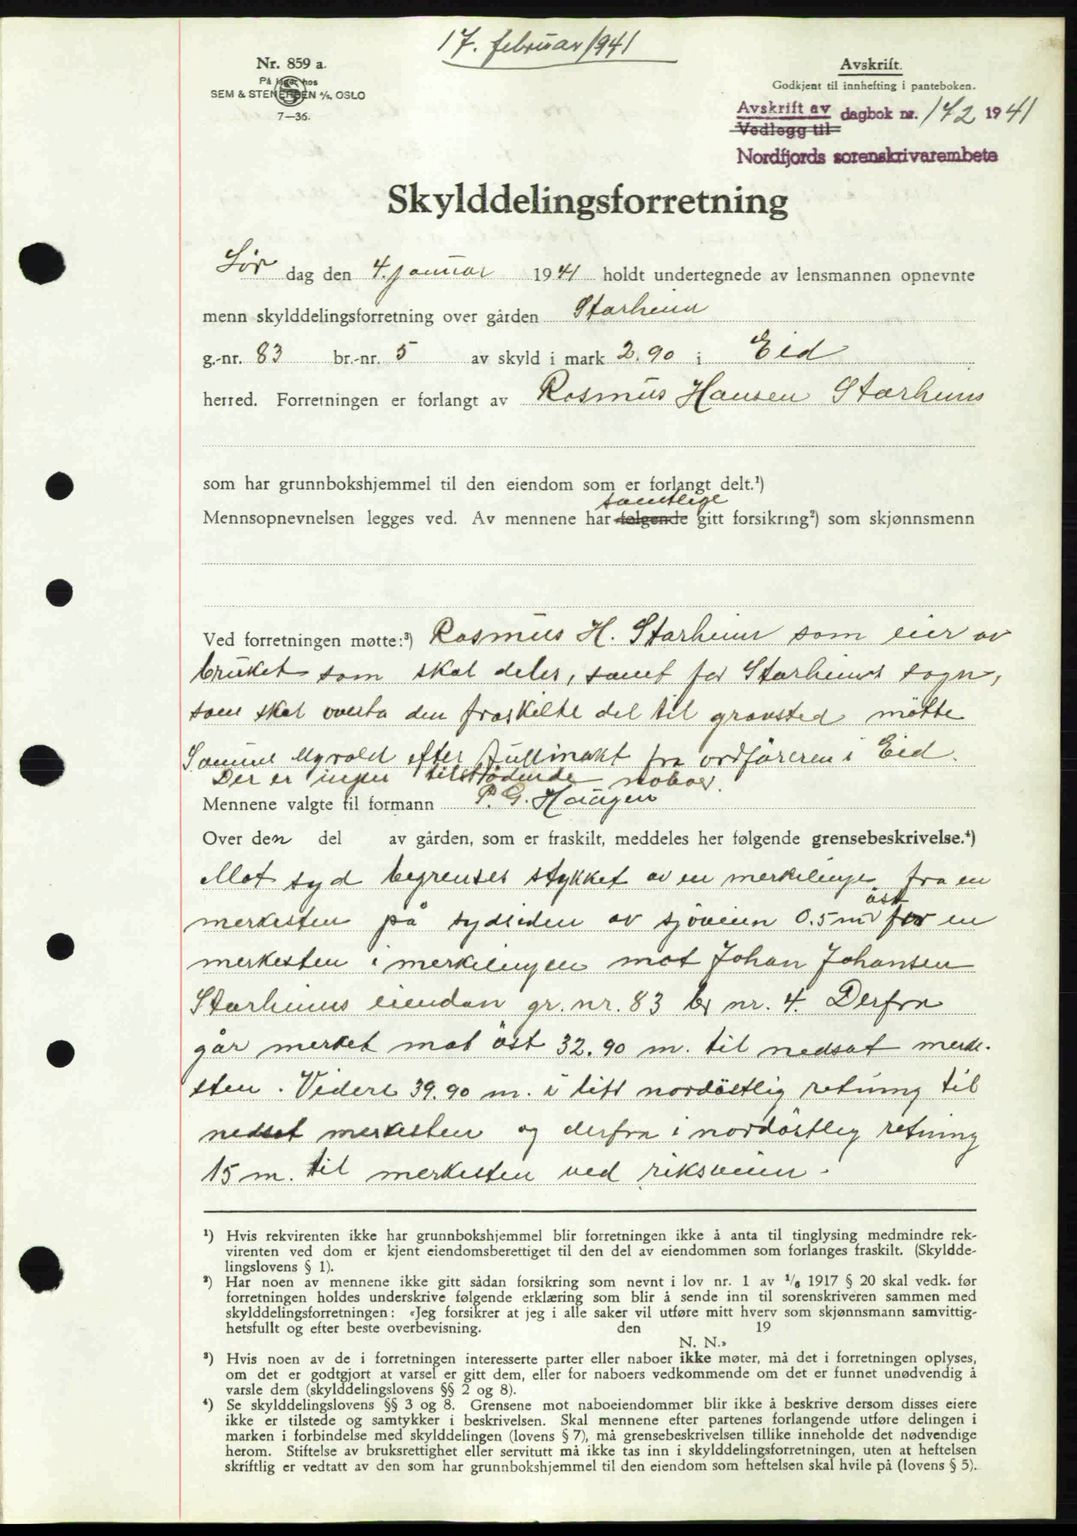 17. februar 1941
Nr. 859 a.
På lager hos
SEM & STENERSEN A/S, OSLO
7—36.
Avskrift.
Godkjent til innhefting i panteboken.
Avskrift av dagbok nr. 172 1941
Vedlegg til
Nordfjords sorenskrivarembete
Skylddelingsforretning
Lør dag den 4. januar 1941 holdt undertegnede av lensmannen opnevnte
menn skylddelingsforretning over gården Starheim
g.-nr. 83 br.-nr. 5 av skyld i mark 2.90 i Eid
herred. Forretningen er forlangt av Rasmus Hansen Starheim
som har grunnbokshjemmel til den eiendom som er forlangt delt.¹)
samtlige
Mennsopnevnelsen legges ved. Av mennene har følgende gitt forsikring²) som skjønnsmenn
Ved forretningen møtte:³) Rasmus H. Starheim som eier av
bruket som skal deles, samt for Starheims sogn,
som skal overta den fraskilte del til gravsted møtte
Samuel Myrold efter fullmakt fra ordföreren i Eid.
Der er ingen tilstödende naboer.
Mennene valgte til formann P. G. Haugen
Over den del av gården, som er fraskilt, meddeles her følgende grensebeskrivelse.⁴)
Mot syd begrenses stykket av en merkelinje fra en
öst
merkesten på sydsiden av sjöveien 0.5 m for en
merkesten i merkelinjen mot Johan Johansen
Starheims eiendom gr. nr. 83 br nr. 4. Derfra
går merket mot öst 32.90 m. til nedsat merke-
sten. Videre 39.90 m. i litt nordöstlig retning til
nedsat merkesten og derfra i nordöstleg retning
15 m. til merkesten ved riksveien.
¹) Hvis rekvirenten ikke har grunnbokshjemmel blir forretningen ikke å anta til tinglysing medmindre rek-
virenten ved dom er kjent eiendomsberettiget til den del av eiendommen som forlanges fraskilt. (Skyldde-
lingslovens § 1).
²) Har noen av mennene ikke gitt sådan forsikring som nevnt i lov nr. 1 av 1/6 1917 § 20 skal vedk. før
forretningen holdes underskrive følgende erklæring som blir å sende inn til sorenskriveren sammen med
skylddelingsforretningen: «Jeg forsikrer at jeg i alle saker vil utføre mitt hverv som skjønnsmann samvittig-
hetsfullt og efter beste overbevisning. den 19
N. N.»
³) Hvis noen av de i forretningen interesserte parter eller naboer ikke møter, må det i forretningen oplyses,
om det er godtgjort at varsel er gitt dem, eller for naboers vedkommende om det er funnet unødvendig å
varsle dem (skylddelingslovens §§ 2 og 8).
⁴) Se skylddelingslovens §§ 3 og 8. Grensene mot naboeiendommer blir ikke å beskrive dersom disses eiere
ikke er tilstede og samtykker i beskrivelsen. Skal mennene efter partenes forlangende utføre delingen i
marken i forbindelse med skylddelingen (lovens § 7), må grensebeskrivelsen tillike inneholde det nødvendige
herom. Stiftelse av bruksrettighet eller servitutt må ikke tas inn i skylddelingsforretningen, uten at heftelsen
skriftlig er vedtatt av den som har grunnbokshjemmel til den eiendom som heftelsen skal hvile på (lovens § 5).